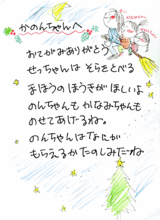 かのんちゃんへ
おてがみありがとう
せっちゃんは そらをとべる
まほうのほうきがほしいよ
のんちゃんも かなみちゃんも
のせてあげるね。
のんちゃんはなにが
もらえるかたのしみだね